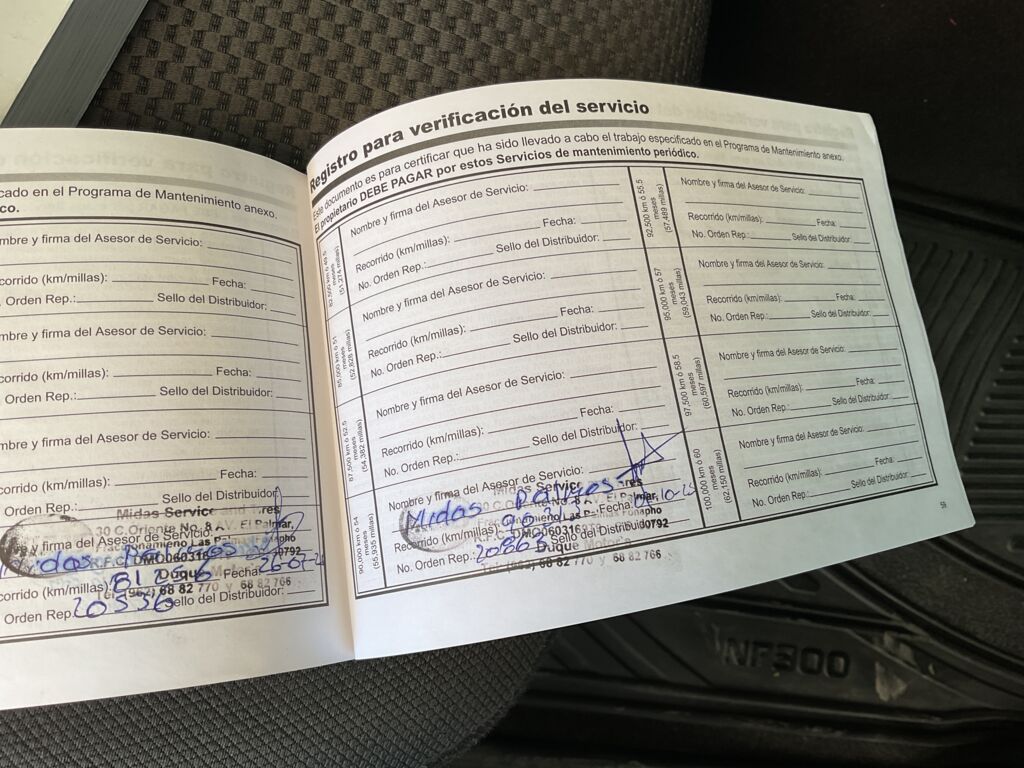 cado en el Programa de Mantenimiento anexo.
co.
mbre y firma del Asesor de Servicio:
corrido (km/millas): Fecha:
. Orden Rep.: Sello del Distribuidor:
mbre y firma del Asesor de Servicio:
corrido (km/millas): Fecha:
Orden Rep.: Sello del Distribuidor:
mbre y firma del Asesor de Servicio:
corrido (km/millas): Fecha:
Orden Rep.: Sello del Distribuidor:
y firma del Asesor de Servicio:
Midas Service
30 C.Oriente No. 8 A V. El Palmar,
corrido (km/millas) Fecha
Duque
68 82 770 y 68 82 766
Orden Rep. 20536 Sello del Distribuidor:
Registro para verificación del servicio
Este documento es para certificar que ha sido llevado a cabo el trabajo especificado en el Programa de Mantenimiento anexo.
El propietario DEBE PAGAR por estos Servicios de mantenimiento periódico.
82,500 km ó 49.5
meses
(51,274 millas)
Nombre y firma del Asesor de Servicio:
Recorrido (km/millas): Fecha:
No. Orden Rep.: Sello del Distribuidor:
85,000 km ó 51
meses
(52,828 millas)
Nombre y firma del Asesor de Servicio:
Recorrido (km/millas): Fecha:
No. Orden Rep.: Sello del Distribuidor:
87,500 km ó 52.5
meses
(54,382 millas)
Nombre y firma del Asesor de Servicio:
Recorrido (km/millas): Fecha:
No. Orden Rep.: Sello del Distribuidor:
90,000 km ó 54
meses
(55,935 millas)
Nombre y firma del Asesor de Servicio:
Midas Service
Midas
Recorrido (km/millas): Fecha:
No. Orden Rep.: 20863 Sello del Distribuid
Duque Motor's
68 82 770 y 68 82 766
92,500 km ó 55.5
meses
(57,489 millas)
Nombre y firma del Asesor de Servicio:
Recorrido (km/millas): Fecha:
No. Orden Rep.: Sello del Distribuidor:
95,000 km ó 57
meses
(59,043 millas)
Nombre y firma del Asesor de Servicio:
Recorrido (km/millas): Fecha:
No. Orden Rep.: Sello del Distribuidor:
97,500 km ó 58.5
meses
(60,597 millas)
Nombre y firma del Asesor de Servicio:
Recorrido (km/millas): Fecha:
No. Orden Rep.: Sello del Distribuidor:
100,000 km ó 60
meses
(62,150 millas)
Nombre y firma del Asesor de Servicio:
Recorrido (km/millas): Fecha:
No. Orden Rep.: Sello del Distribuidor:
59
NF300